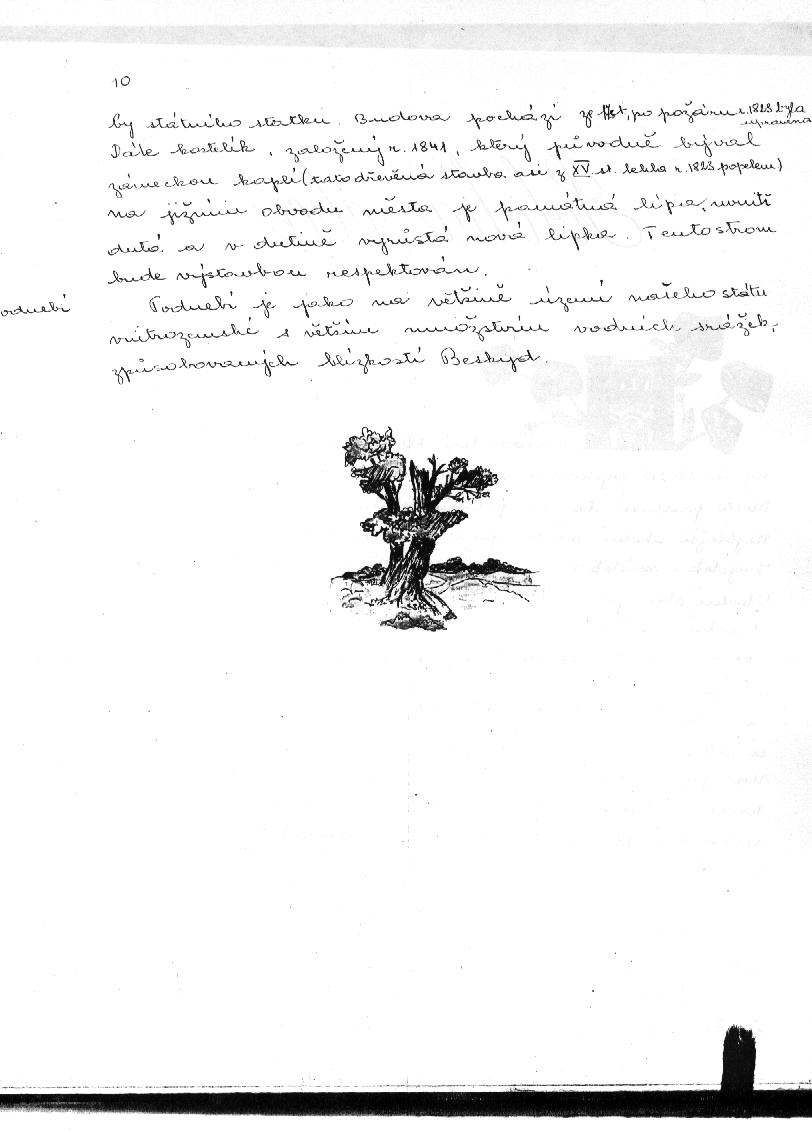 10
by státního statku. Budova pochází ze st., po požáru r. 1823 byla
upravena
Dále kostelík, založený r. 1841, který původně býval
zámeckou kaplí (tato dřevěná stavba asi z XV st. lehla r. 1823 popelem)
na jižním obvodu města je památná lípa, uvnitř
dutá a v dutině vyrůstá nová lipka. Tento strom
bude výstavbou respektován.
odnebí
Podnebí je jako na většině území našeho státu
vnitrozemské s větším množstvím vodních srážek,
způsobovaných blízkostí Beskyd.